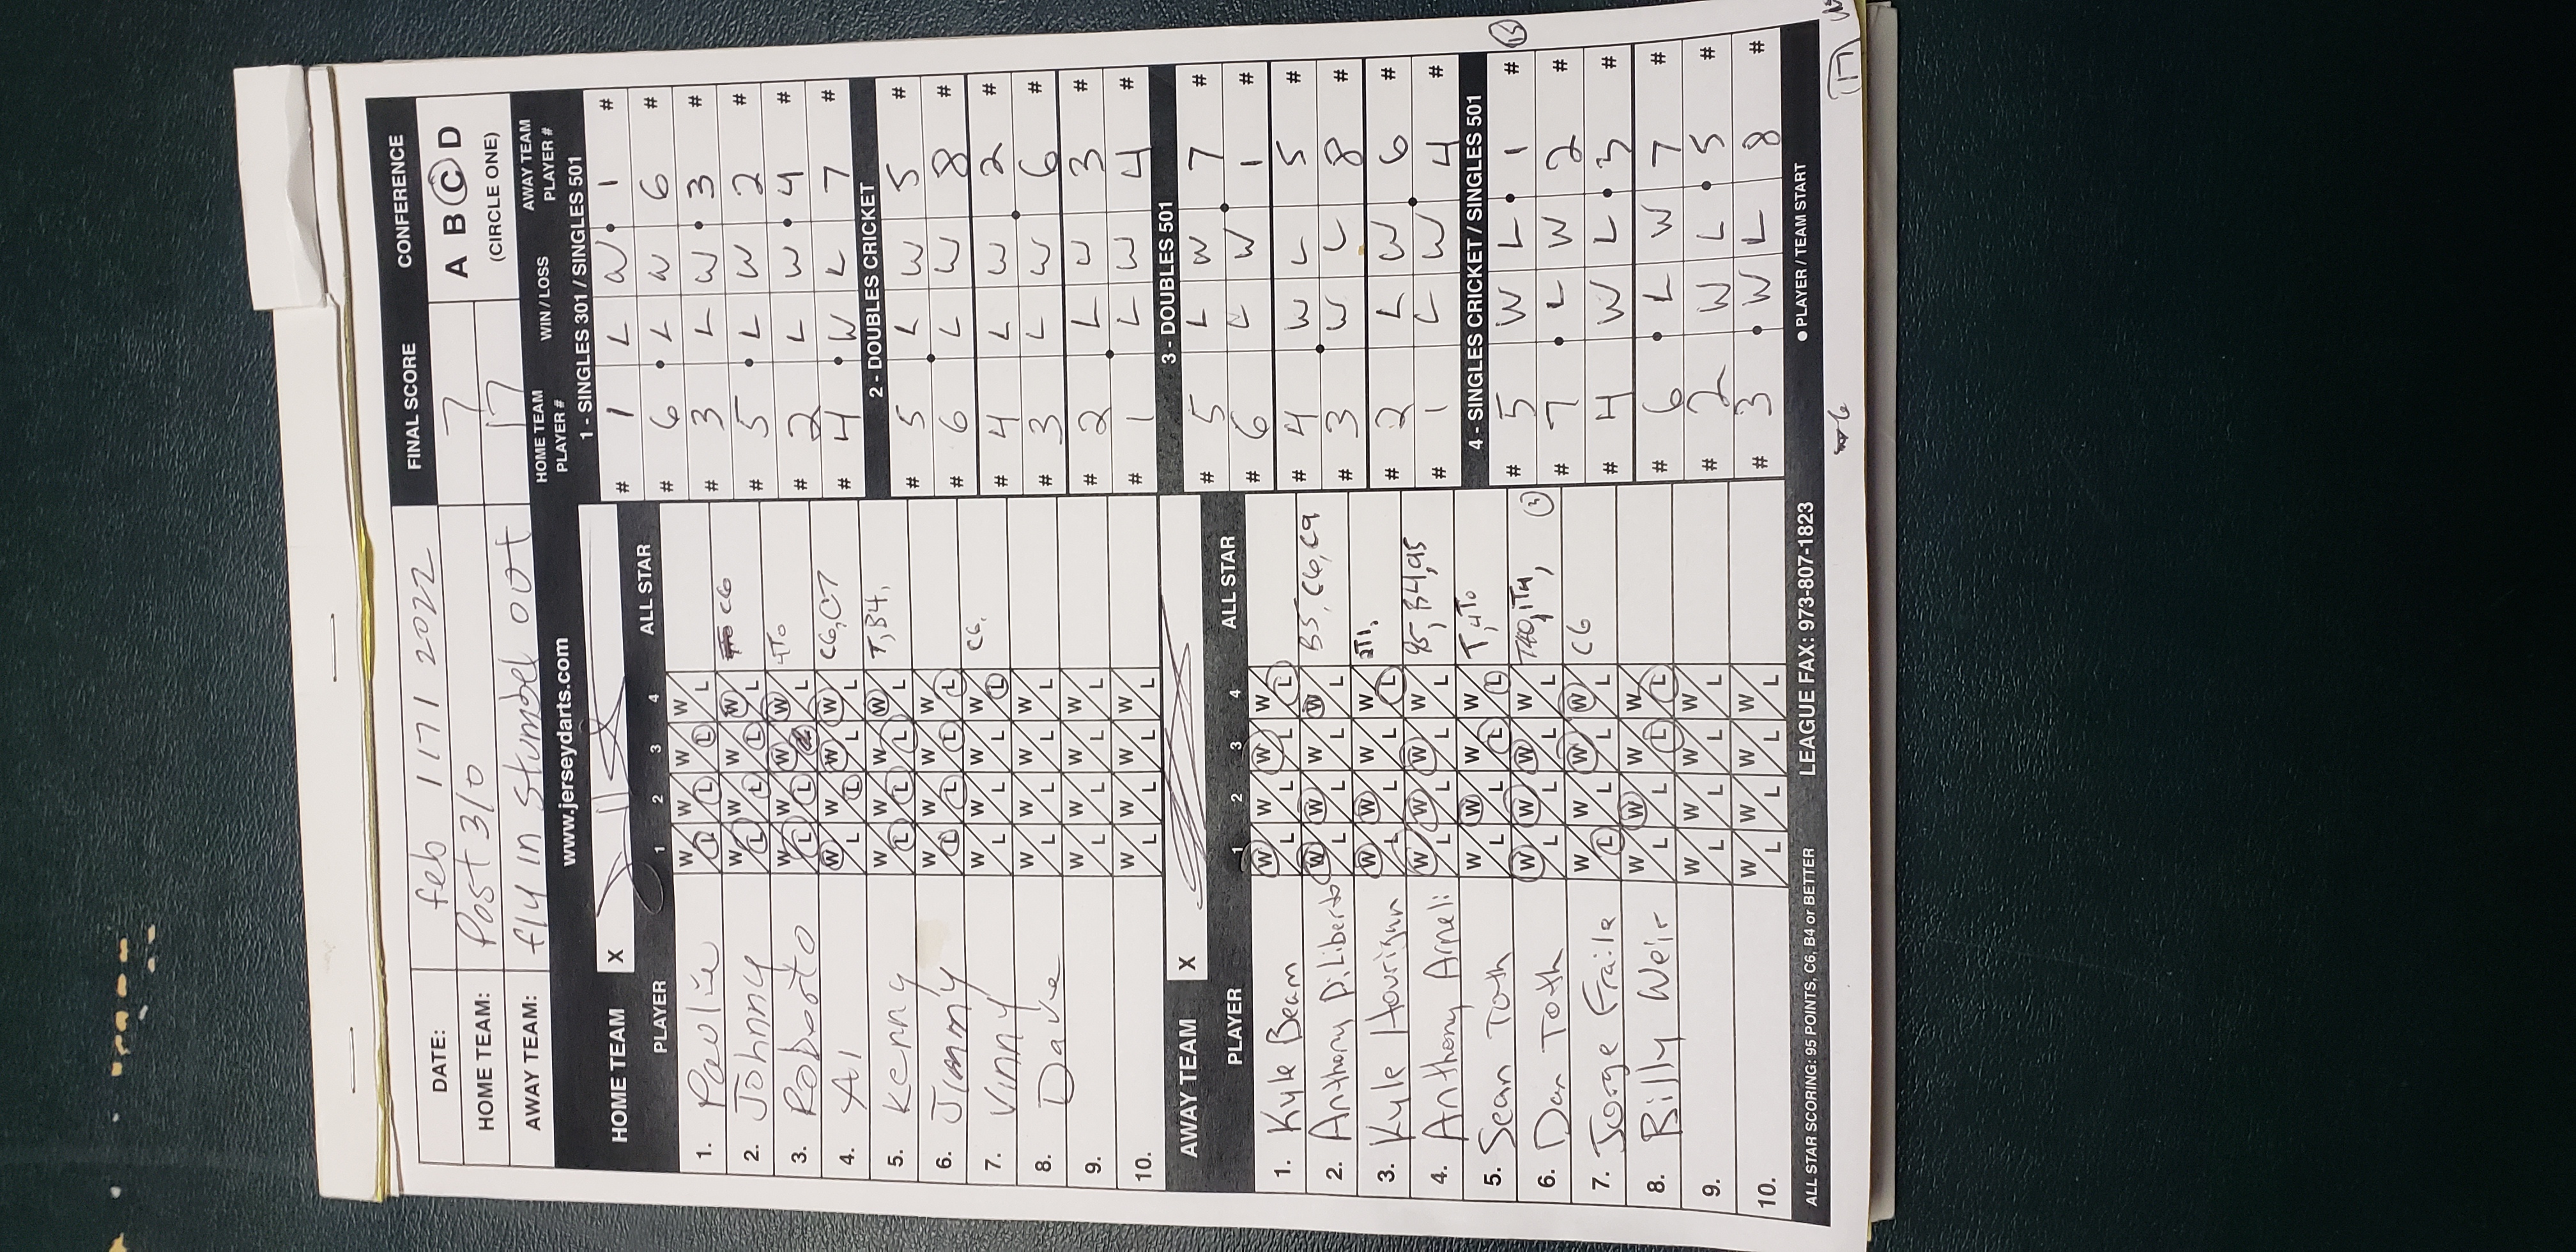 DATE: feb 17 / 2022 FINAL SCORE CONFERENCE
HOME TEAM: Post 310 7 A B C D
AWAY TEAM: fly in Stumbel out 17 (CIRCLE ONE)
www.jerseydarts.com
HOME TEAM PLAYER # WIN / LOSS AWAY TEAM PLAYER #
HOME TEAM X
PLAYER 1 2 3 4 ALL STAR
1. Paulie W/L W/L W/L W/L
2. Johnny W/L W/L W/L W/L C6
3. Roberto W/L W/L W/L W/L 4TO
4. Al W/L W/L W/L W/L C6, C7
5. Kenny W/L W/L W/L W/L T, B4,
6. Jimmy W/L W/L W/L W/L
7. Vinny W/L W/L W/L W/L C6,
8. Dave W/L W/L W/L W/L
9. W/L W/L W/L W/L
10. W/L W/L W/L W/L
AWAY TEAM X
PLAYER 1 2 3 4 ALL STAR
1. Kyle Beam W/L W/L W/L W/L
2. Anthony DiLiberto W/L W/L W/L W/L B5, C6, C9
3. Kyle Hourigan W/L W/L W/L W/L
4. Anthony Arneli W/L W/L W/L W/L 95, B4, 95
5. Sean Toth W/L W/L W/L W/L T, 4TO
6. Dan Toth W/L W/L W/L W/L
7. Jorge Fraile W/L W/L W/L W/L C6
8. Billy Weir W/L W/L W/L W/L
9. W/L W/L W/L W/L
10. W/L W/L W/L W/L
1 - SINGLES 301 / SINGLES 501
# 1 L W 1 #
# 6 L W 6 #
# 3 L W 3 #
# 5 L W 2 #
# 2 L W 4 #
# 4 W L 7 #
2 - DOUBLES CRICKET
# 5 L W 5 #
# 6 L W 8 #
# 4 L W 2 #
# 3 L W 6 #
# 2 L W 3 #
# 1 L W 4 #
3 - DOUBLES 501
# 5 L W 7 #
# 6 L W 1 #
# 4 W L 5 #
# 3 W L 8 #
# 2 L W 6 #
# 1 L W 4 #
4 - SINGLES CRICKET / SINGLES 501
# 5 W L 1 #
# 7 L W 2 #
# 4 W L 3 #
# 6 L W 7 #
# 2 W L 5 #
# 3 W L 8 #
ALL STAR SCORING: 95 POINTS, C6, B4 or BETTER LEAGUE FAX: 973-807-1823 ● PLAYER / TEAM START
6 17 W